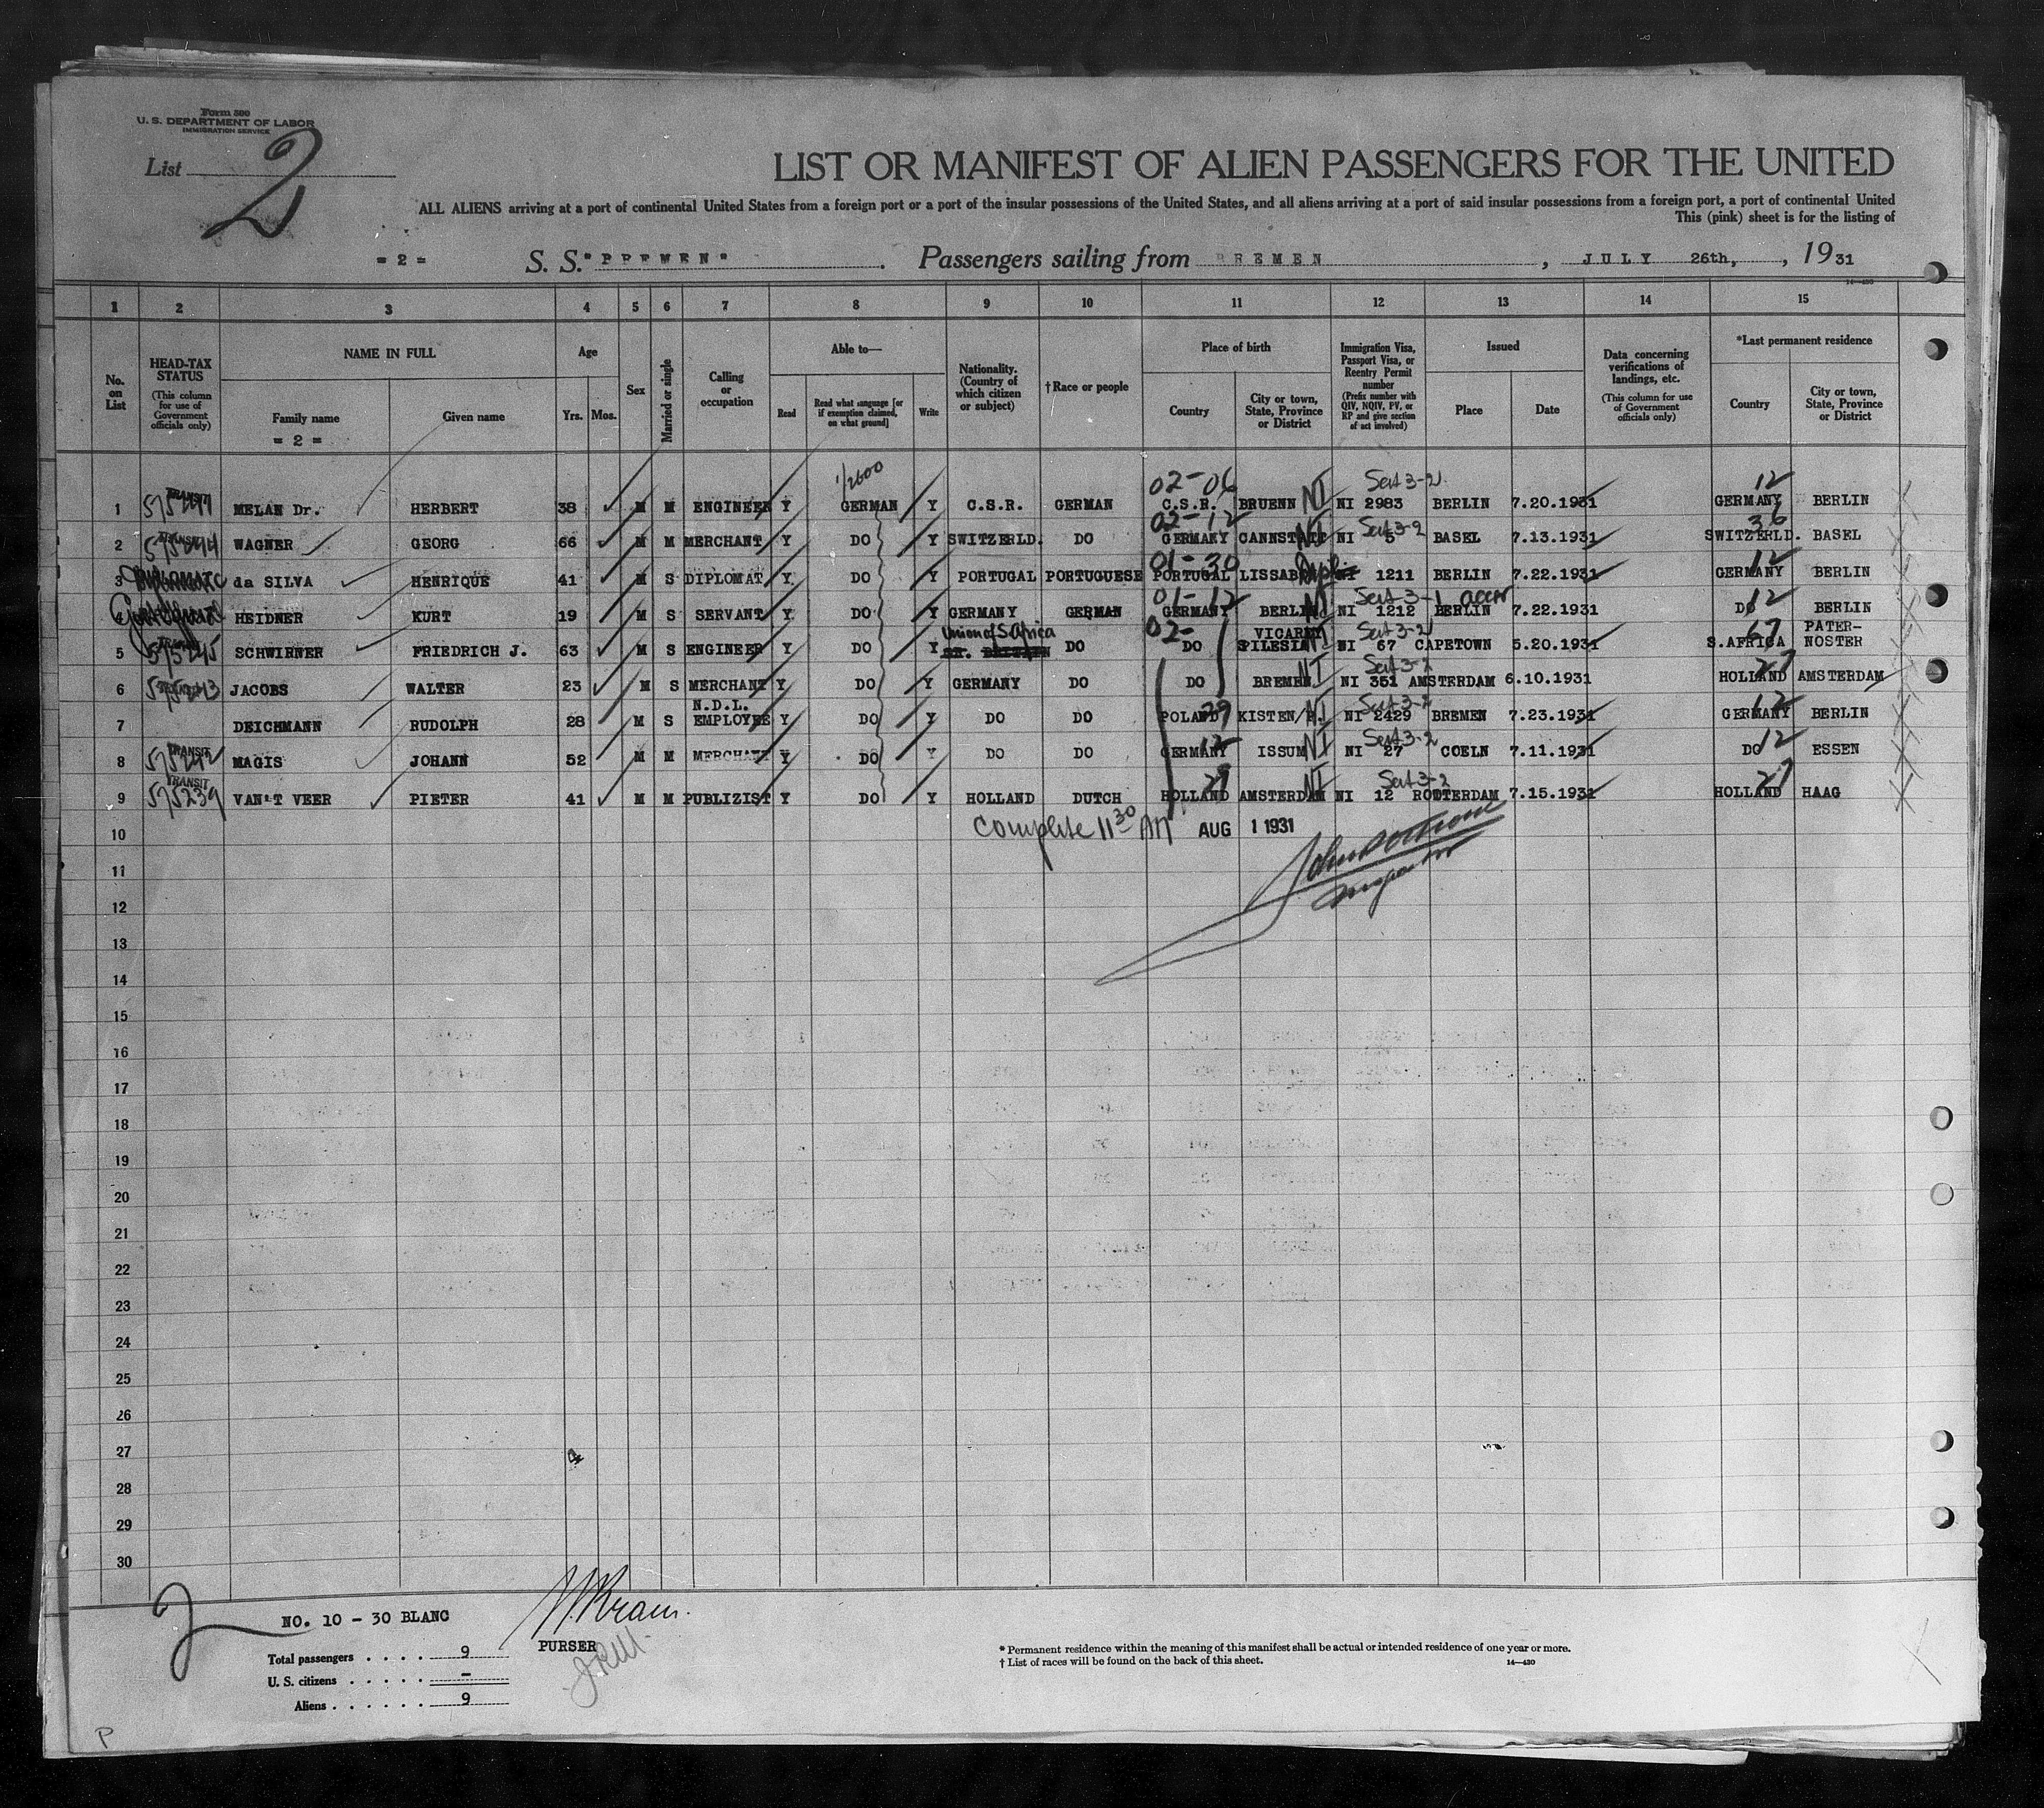 Form 500
U. S. DEPARTMENT OF LABOR
IMMIGRATION SERVICE
List 2
LIST OR MANIFEST OF ALIEN PASSENGERS FOR THE UNITED
ALL ALIENS arriving at a port of continental United States from a foreign port or a port of the insular possessions of the United States, and all aliens arriving at a port of said insular possessions from a foreign port, a port of continental United
This (pink) sheet is for the listing of
= 2 = S. S. "BREMEN" Passengers sailing from BREMEN, JULY 26th, 1931
14—430
1 2 3 4 5 6 7 8 9 10 11 12 13 14 15
No. on List
HEAD-TAX STATUS
(This column for use of Government officials only)
NAME IN FULL
Family name
= 2 =
Given name
Age
Yrs. Mos.
Sex
Married or single
Calling or occupation
Able to—
Read
Read what language [or if exemption claimed, on what ground]
Write
Nationality. (Country of which citizen or subject)
† Race or people
Place of birth
Country
City or town, State, Province or District
Immigration Visa, Passport Visa, or Reentry Permit number
(Prefix number with QIV, NQIV, PV, or RP and give section of act involved)
Issued
Place
Date
Data concerning verifications of landings, etc.
(This column for use of Government officials only)
*Last permanent residence
Country
City or town, State, Province or District
1/2600 02-06 Sect 3-2 12
1 MELAN Dr. HERBERT 38 M M ENGINEER Y GERMAN Y C.S.R. GERMAN C.S.R. BRUENN NI NI 2983 BERLIN 7.20.1931 GERMANY BERLIN
02-12 Sect 3-2 36
2 WAGNER GEORG 66 M M MERCHANT Y DO Y SWITZERLD. DO GERMANY CANNSTATT NI NI 5 BASEL 7.13.1931 SWITZERLD. BASEL
01-30 12
3 da SILVA HENRIQUE 41 M S DIPLOMAT Y DO Y PORTUGAL PORTUGUESE PORTUGAL LISSABON 1211 BERLIN 7.22.1931 GERMANY BERLIN
01-12 Sect 3-1 12
4 HEIDNER KURT 19 M S SERVANT Y DO Y GERMANY GERMAN GERMANY BERLIN NI NI 1212 BERLIN 7.22.1931 DO BERLIN
Union of S. Africa 02- VICAREY Sect 3-2 67 PATER-
5 TRANSIT 575245 SCHWIRNER FRIEDRICH J. 63 M S ENGINEER Y DO Y GR. BRITAIN DO DO SILESIA NI NI 67 CAPETOWN 5.20.1931 S.AFRICA NOSTER
Sect 3-2 27
6 575243 JACOBS WALTER 23 M S MERCHANT Y DO Y GERMANY DO DO BREMEN NI NI 351 AMSTERDAM 6.10.1931 HOLLAND AMSTERDAM
N.D.L. 29 Sect 3-2 12
7 DEICHMANN RUDOLPH 28 M S EMPLOYEE Y DO Y DO DO POLAND KISTEN/P. NI NI 2429 BREMEN 7.23.1931 GERMANY BERLIN
12 Sect 3-2 12
8 TRANSIT 575242 MAGIS JOHANN 52 M M MERCHANT Y DO Y DO DO GERMANY ISSUM NI NI 27 COELN 7.11.1931 DO ESSEN
27 Sect 3-2 27
9 TRANSIT 575239 VAN'T VEER PIETER 41 M M PUBLIZIST Y DO Y HOLLAND DUTCH HOLLAND AMSTERDAM NI NI 12 ROTTERDAM 7.15.1931 HOLLAND HAAG
10 Complete 11 30 AM AUG 1 1931
11 Inspector
12
13
14
15
16
17
18
19
20
21
22
23
24
25
26
27 4
28
29
30
2 NO. 10 - 30 BLANC
PURSER
Total passengers . . . . 9
U. S. citizens . . . . . –
Aliens . . . . . . 9
* Permanent residence within the meaning of this manifest shall be actual or intended residence of one year or more.
† List of races will be found on the back of this sheet.
14—430
P